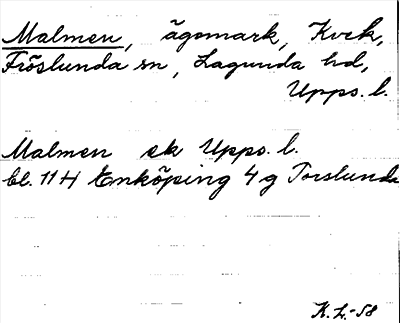 Malmen, ägomark, Kvek,
Fröslunda sn, Lagunda hd,
Upps. l.
Malmen ek Upps. l.
bl. 11 H Enköping 4 g Torslunda
K. L. -58